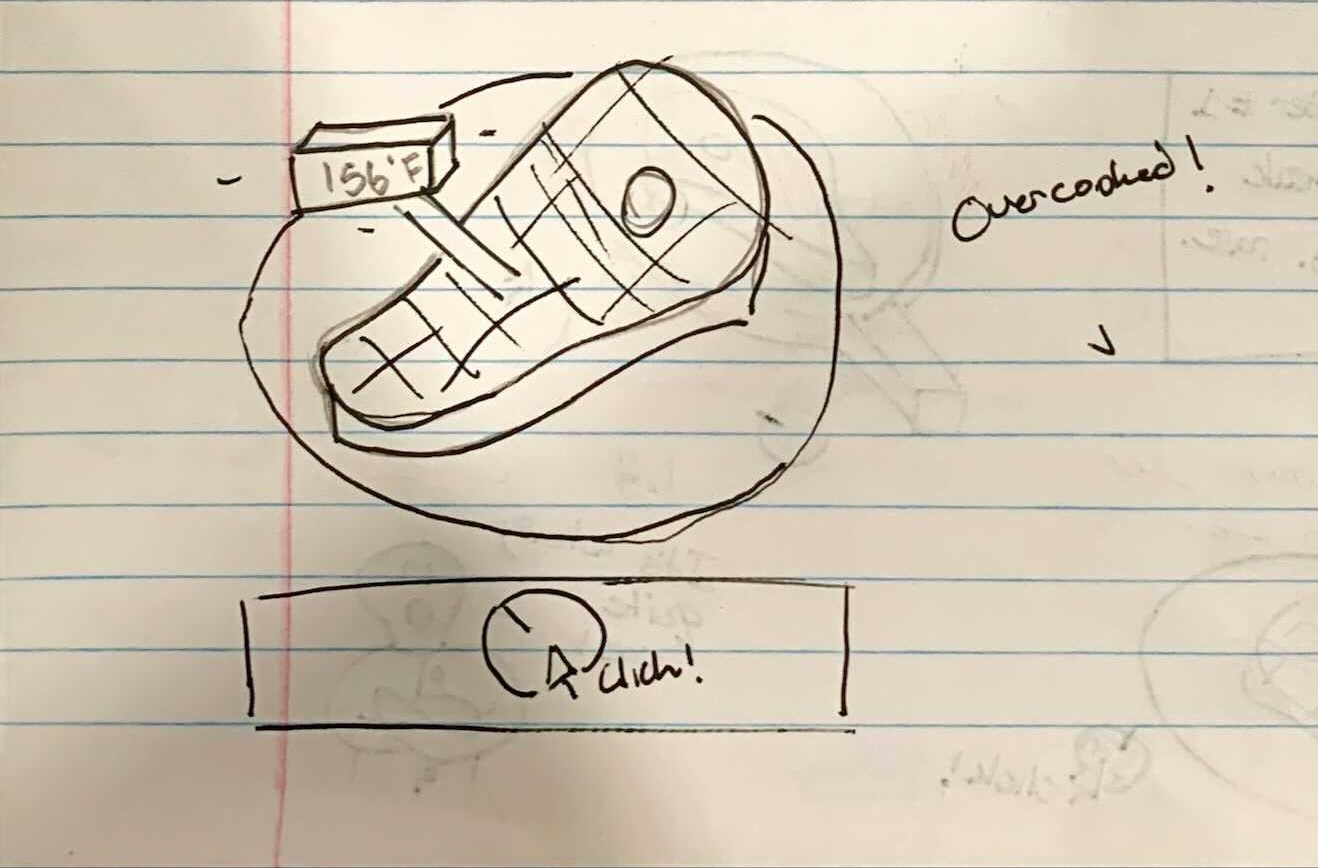 156°F
Overcooked!
click!